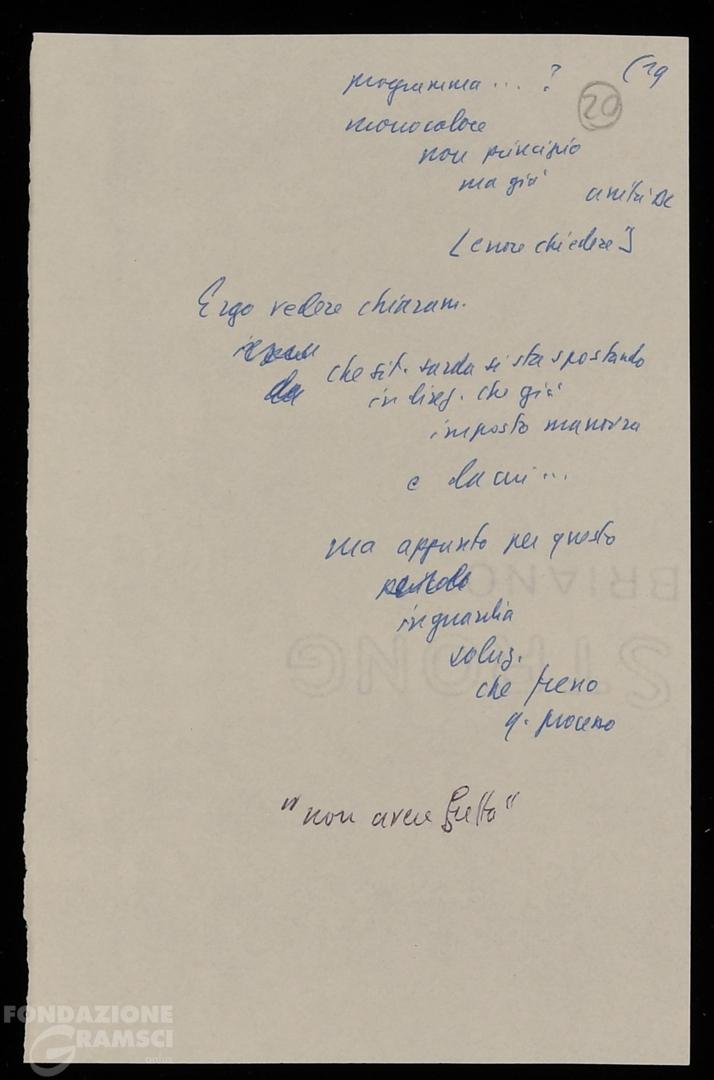 (19
programma ... ?
20
monocolore
non principio
ma già
unità DC
[ chiedere ]
Ergo vedere chiaram.
che sit. sarda si sta spostando
in direz. che già
imposto manovra
e da cui ...
ma appunto per questo
in guardia
soluz.
che freno
q. processo
"non avere fretta"
BRIANO
STRONG
FONDAZIONE
GRAMSCI
onlus